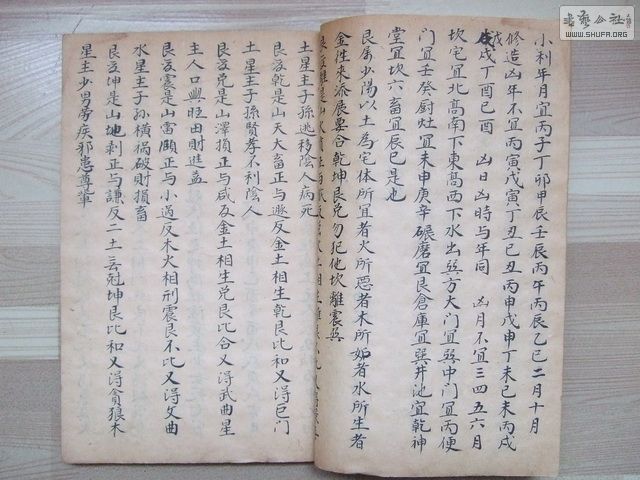 小利年月宜丙子丁卯甲辰壬辰丙午丙辰乙巳二月十月
修造凶年不宜丙寅戊寅丁丑己丑丙申戊申丁未己未丙戌
戊戌丁酉己酉 凶日凶時与年同 凶月不宜三四五六月
坎宅宜北高南下東高西下水出巽方大门宜巽中门宜丙便
门宜壬癸厨灶宜未申庚辛碾磨宜艮倉庫宜巽井池宜乾神
堂宜坎六畜宜辰巳是也
艮属少陽以土為宅体所宜者火所惡者木所妬者水所生者
金性来派展要合乾坤艮兌勿犯他坎離震巽
土星主子孫逃移陰人病死
艮交乾是山天大畜正与遯反金土相生乾艮比和又得巨门
土星主子孫賢孝不利陰人
艮交兌是山澤損正与咸反金土相生兌艮比合又得武曲星
主人口興旺田財進益
艮交震是山雷頤正与小過反木火相刑震艮不比又得文曲
水星主子孙橫禍破財損畜
艮交坤是山地剥正与謙反二土云冠坤艮比和又得貪狼木
星主少男劳疾邪患尊輩
書藝公社
WWW.SHUFA.ORG